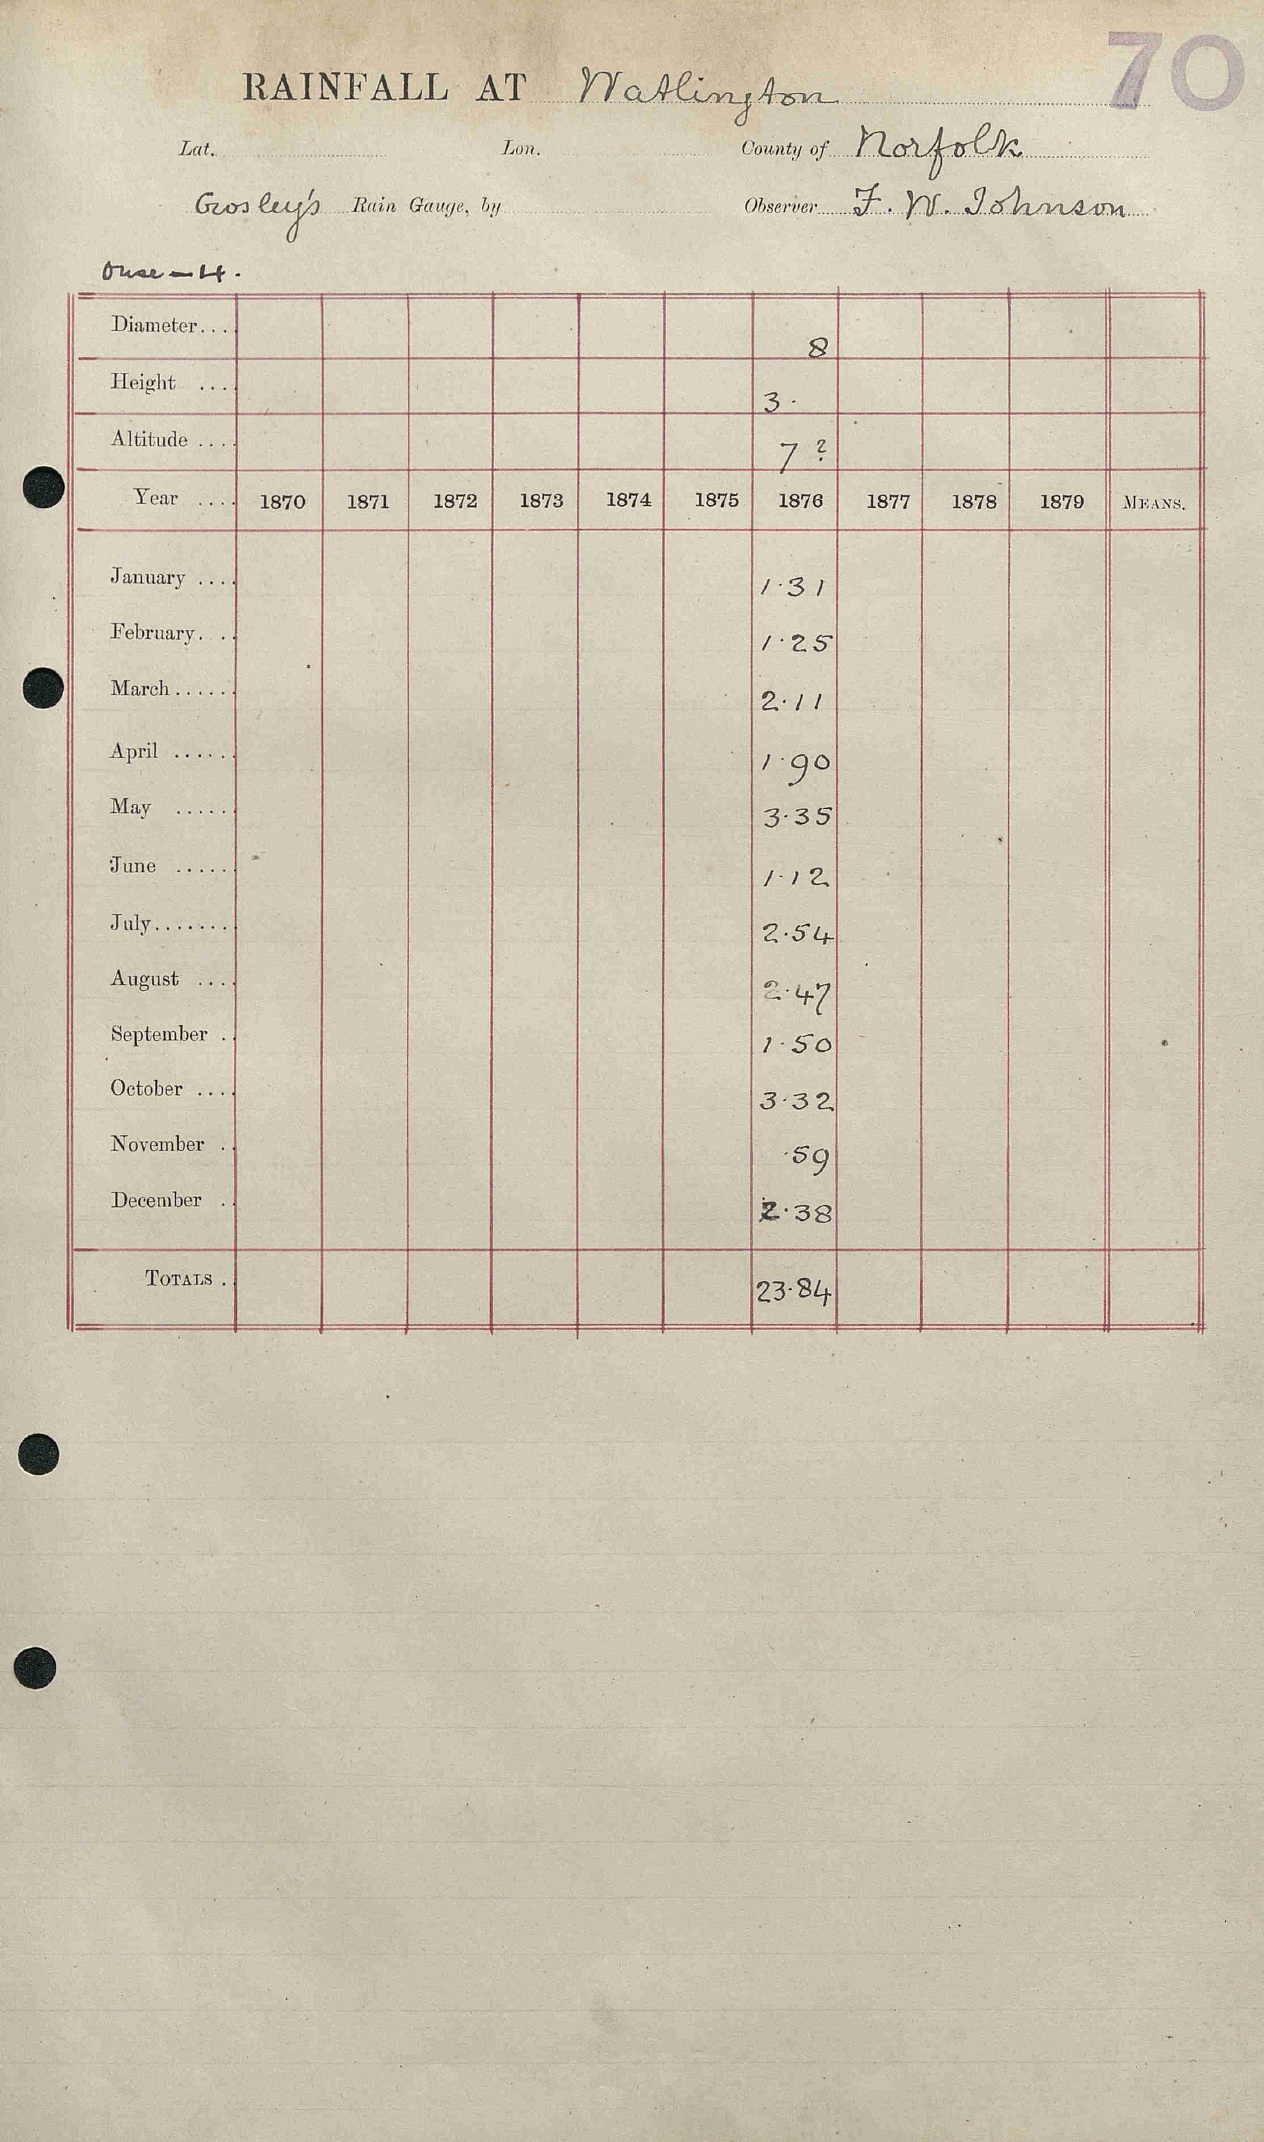 70
RAINFALL AT Watlington
Lat. Lon. County of Norfolk
Crosley's Rain Gauge, by Observer F. W. Johnson
Ouse - 4.
Diameter... 8
Height .... 3.
Altitude .... 7 ?
Year .... 1870 1871 1872 1873 1874 1875 1876 1877 1878 1879 MEANS.
January .... 1.31
February... 1.25
March...... 2.11
April ...... 1.90
May ...... 3.35
June ...... 1.12
July....... 2.54
August .... 2.47
September . 1.50
October .... 3.32
November . .59
December . 2.38
TOTALS . 23.84